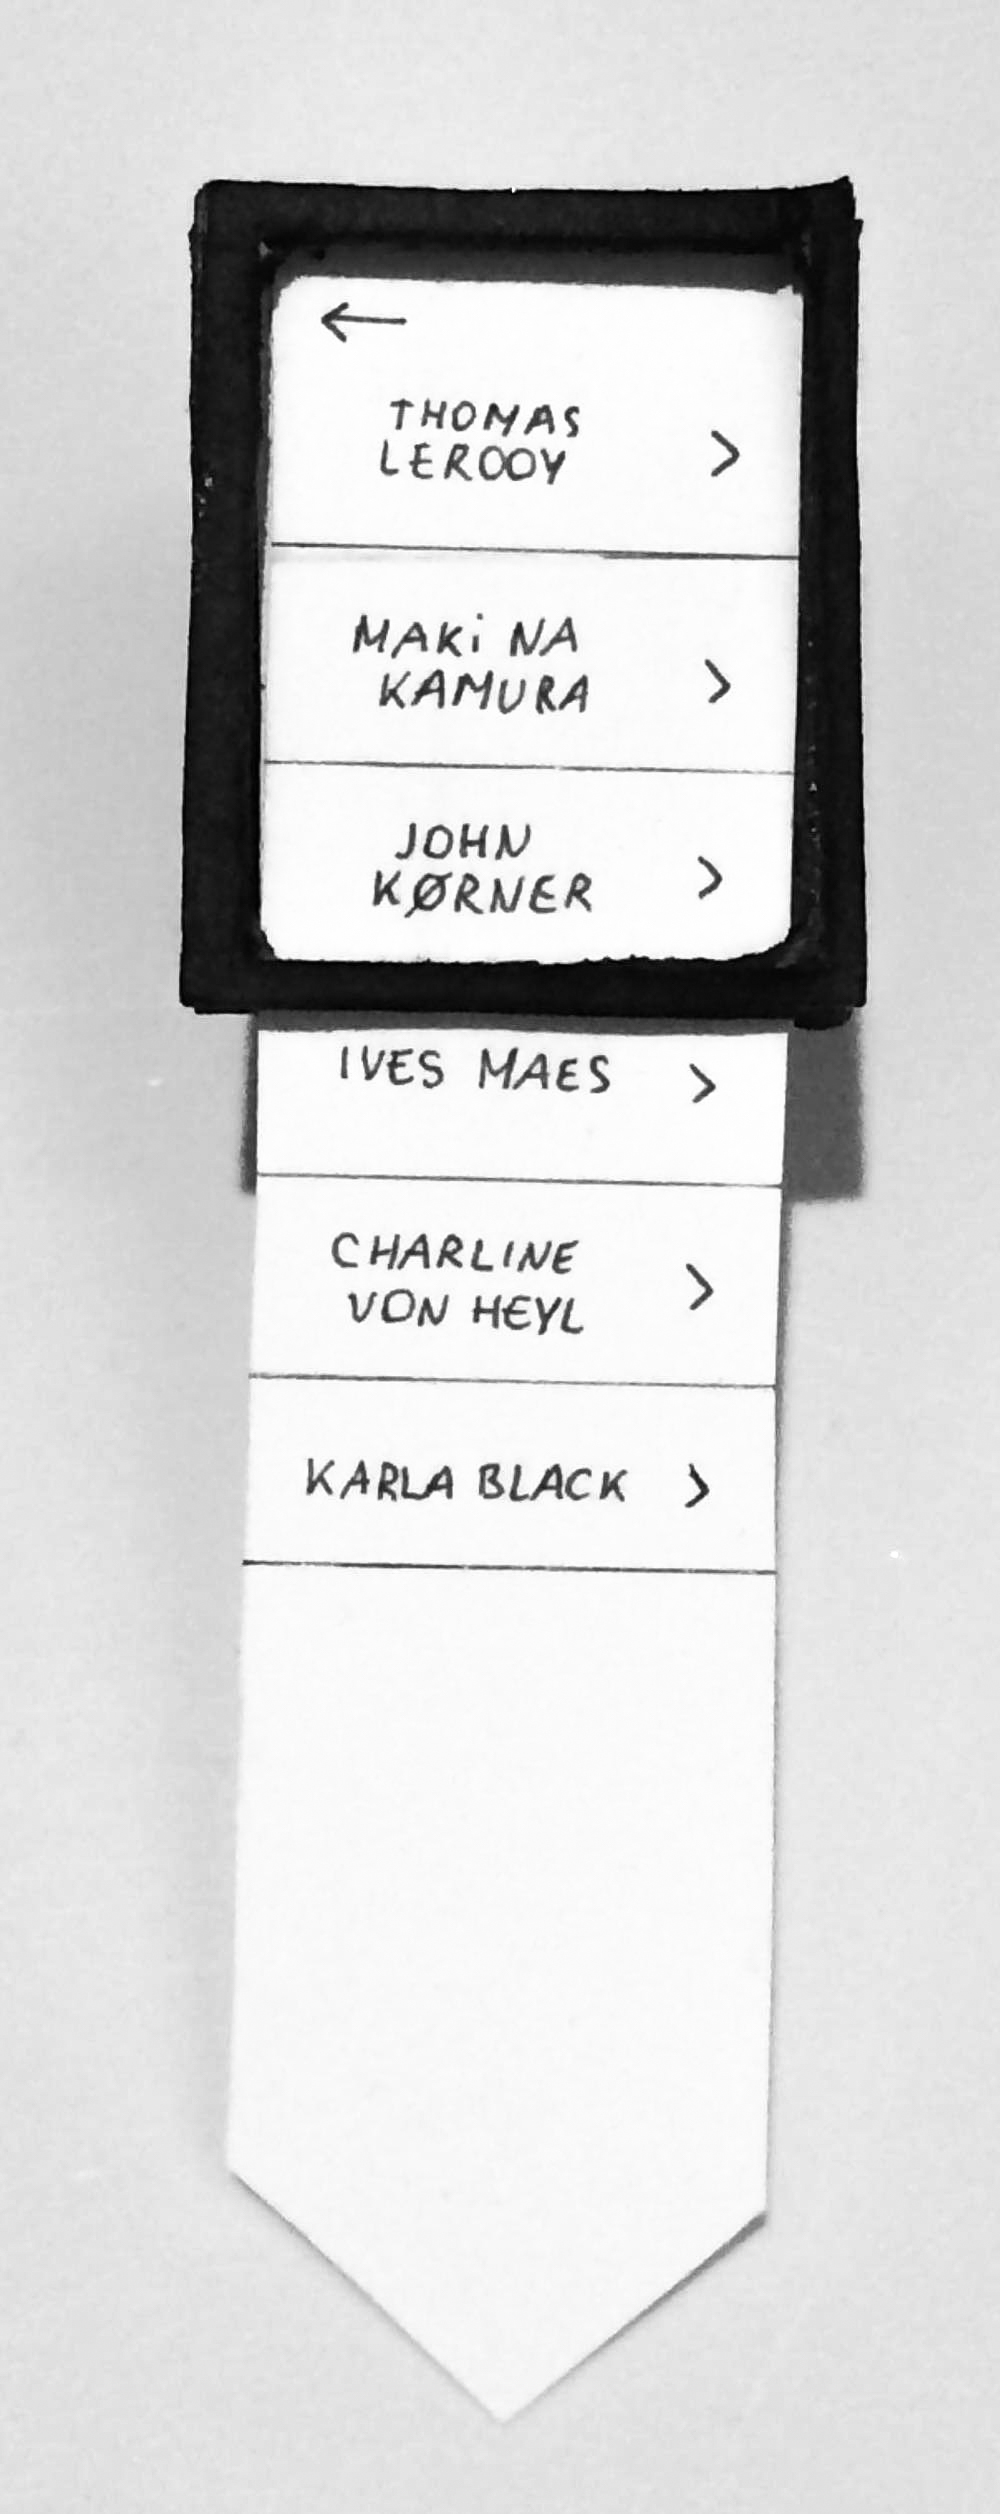 ←
THOMAS
LEROOY >
MAKi NA
KAMURA >
JOHN
KØRNER >
IVES MAES >
CHARLINE
VON HEYL >
KARLA BLACK >